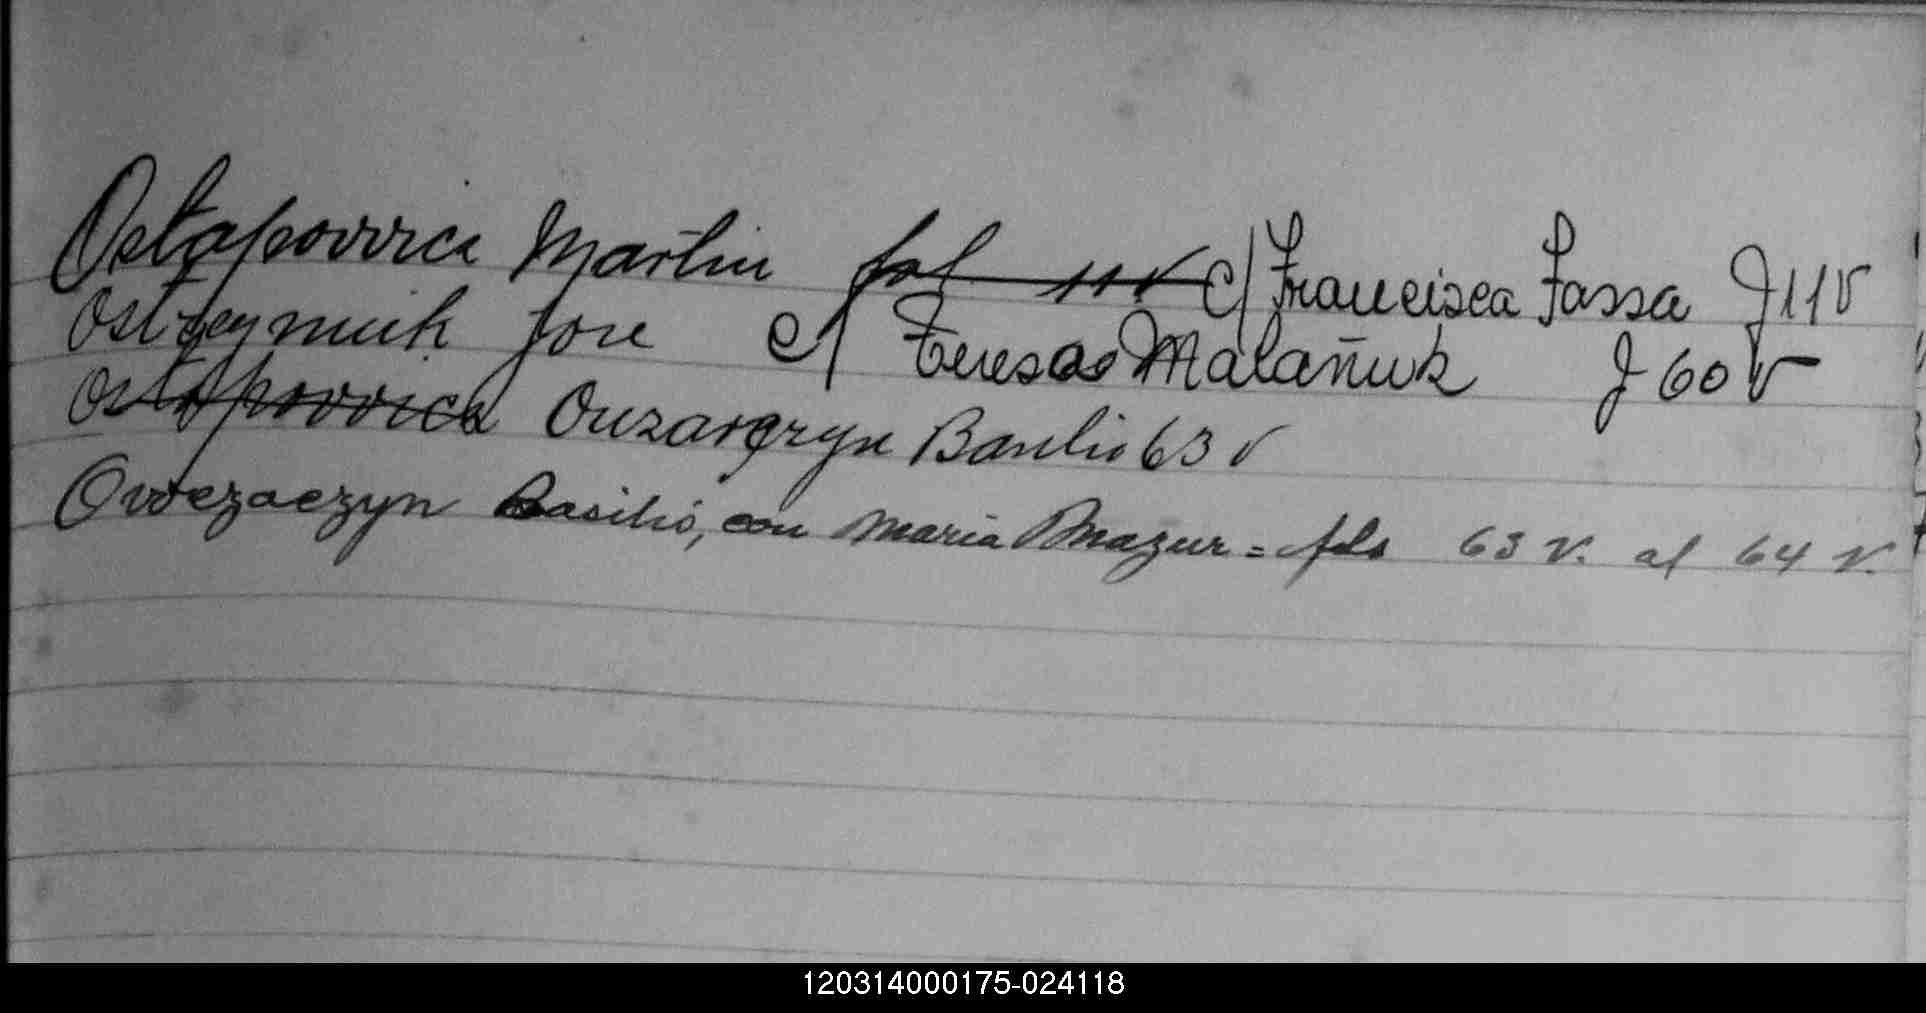 Ostapovvica Martin fol 11 v c/ Francisca Fassa F 11 v
Ostzeymiuk Jose c/ Teresa Malañuk F 60 v
Ostapovvica Ouzarczyn Basilio 63 v
Owczaczyn Basilio, con Maria Mazur = fols 63 v. al 64 v.
120314000175-024118